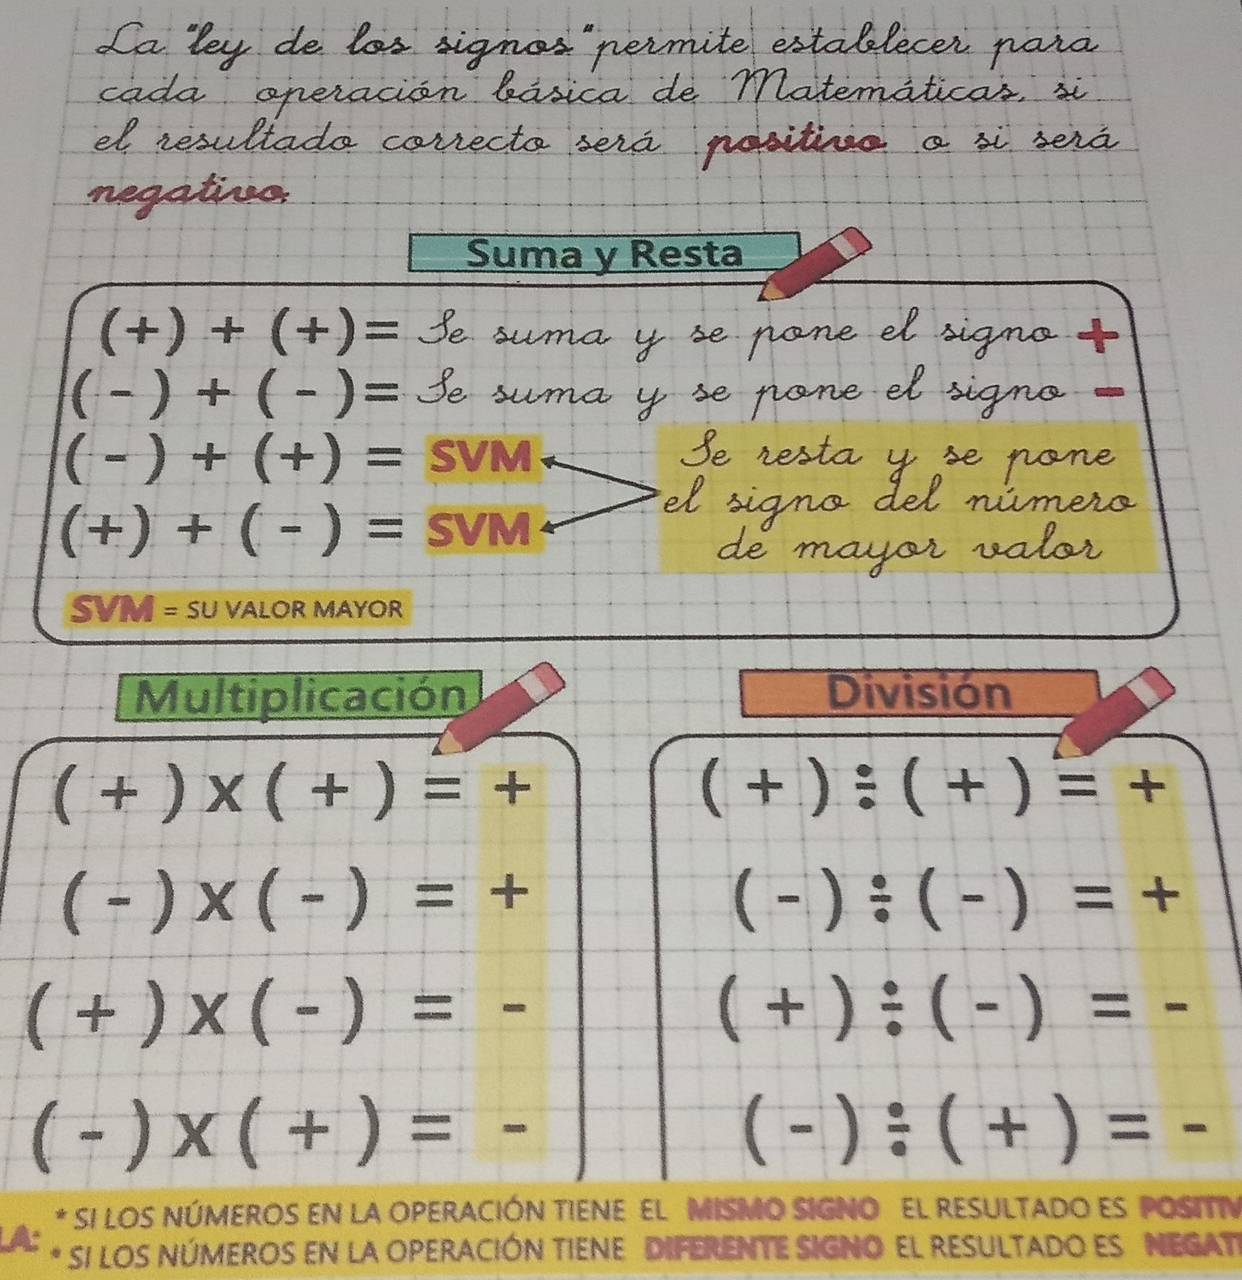 La "ley de los signos" permite establecer para
cada operación básica de Matemáticas, si
el resultado correcto será positivo o si será
negativo.
Suma y Resta
(+) + (+)= Se suma y se pone el signo +
(-) + (-)= Se suma y se pone el signo -
(-) + (+) = SVM
(+) + (-) = SVM
Se resta y se pone
el signo del número
de mayor valor
SVM = SU VALOR MAYOR
Multiplicación
(+)x(+) = +
(-)x(-) = +
(+)x(-) = -
(-)x(+) = -
División
(+)÷(+) = +
(-)÷(-) = +
(+)÷(-) = -
(-)÷(+) = -
LA:
* SI LOS NÚMEROS EN LA OPERACIÓN TIENE EL MISMO SIGNO EL RESULTADO ES POSITIV
* SI LOS NÚMEROS EN LA OPERACIÓN TIENE DIFERENTE SIGNO EL RESULTADO ES NEGATI